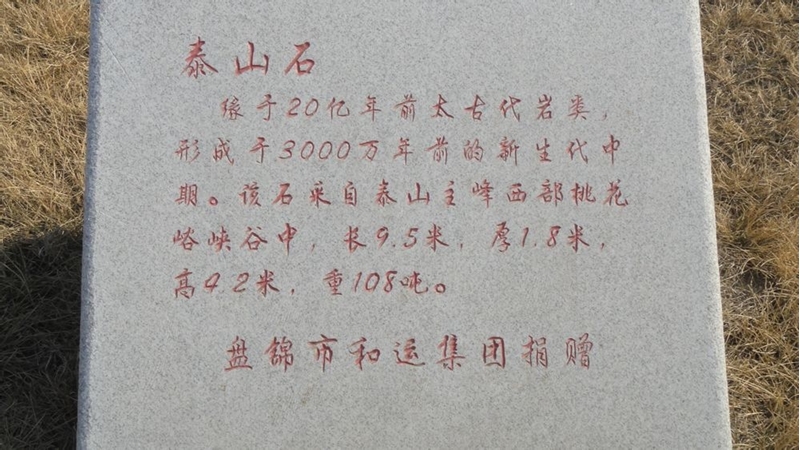 泰山石
缘于20亿年前太古代岩类，
形成于3000万年前的新生代中
期。该石采自泰山主峰西部桃花
峪峡谷中，长9.5米，厚1.8米，
高4.2米，重108吨。
盘锦市和运集团捐赠